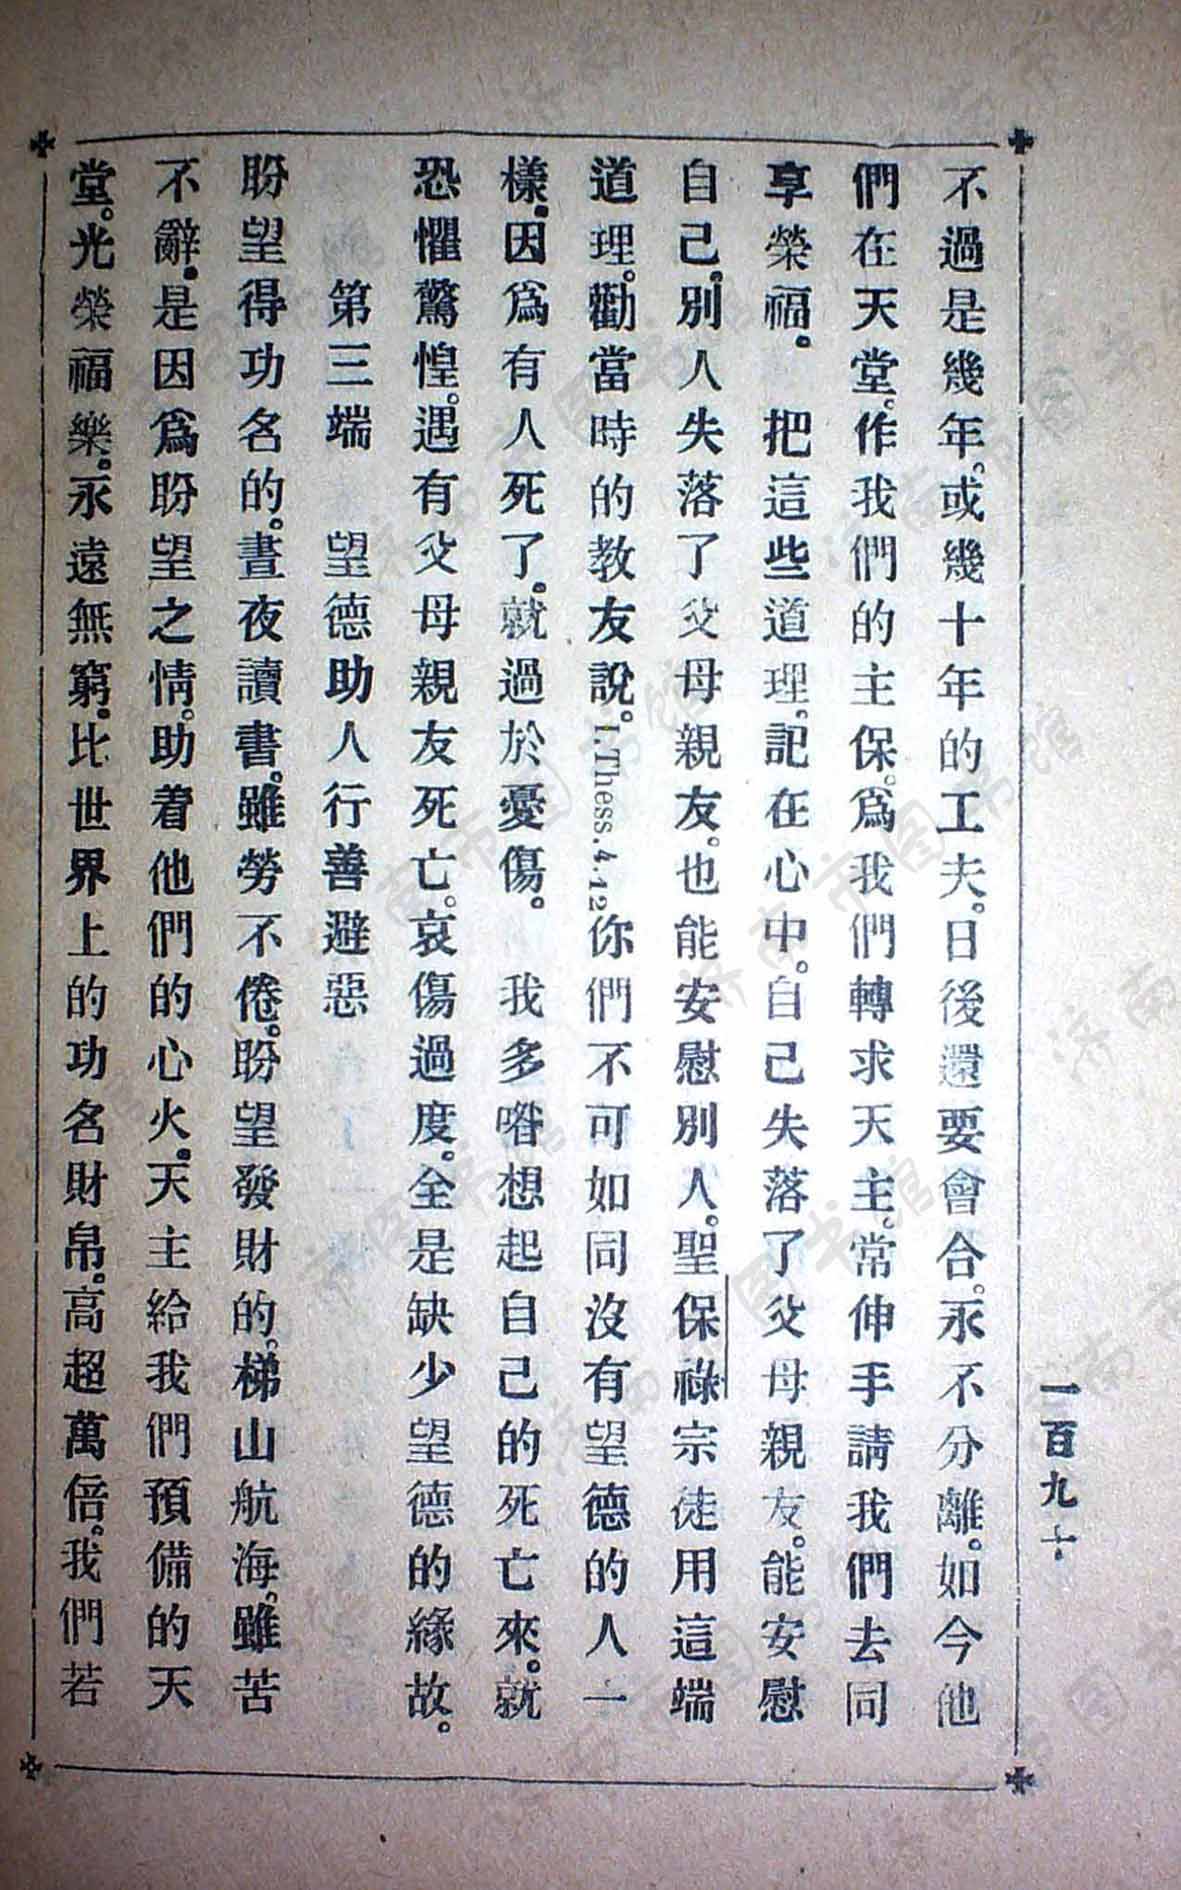 不過是幾年。或幾十年的工夫。日後還要會合。永不分離。如今他
們在天堂。作我們的主保。爲我們轉求天主。常伸手請我們去同
享榮福。　把這些道理。記在心中。自己失落了父母親友。能安慰
自己。別人失落了父母親友。也能安慰別人。聖保祿宗徒用這端
道理。勸當時的教友說。I.Thess.4.12 你們不可如同沒有望德的人一
樣。因爲有人死了。就過於憂傷。　我多喒想起自己的死亡來。就
恐懼驚惶。遇有父母親友死亡。哀傷過度。全是缺少望德的緣故。
第三端　望德助人行善避惡
盼望得功名的。晝夜讀書。雖勞不倦。盼望發財的。梯山航海。雖苦
不辭。是因爲盼望之情。助着他們的心火。天主給我們預備的天
堂。光榮福樂。永遠無窮。比世界上的功名財帛。高超萬倍。我們若
一百九十
济南市图书馆